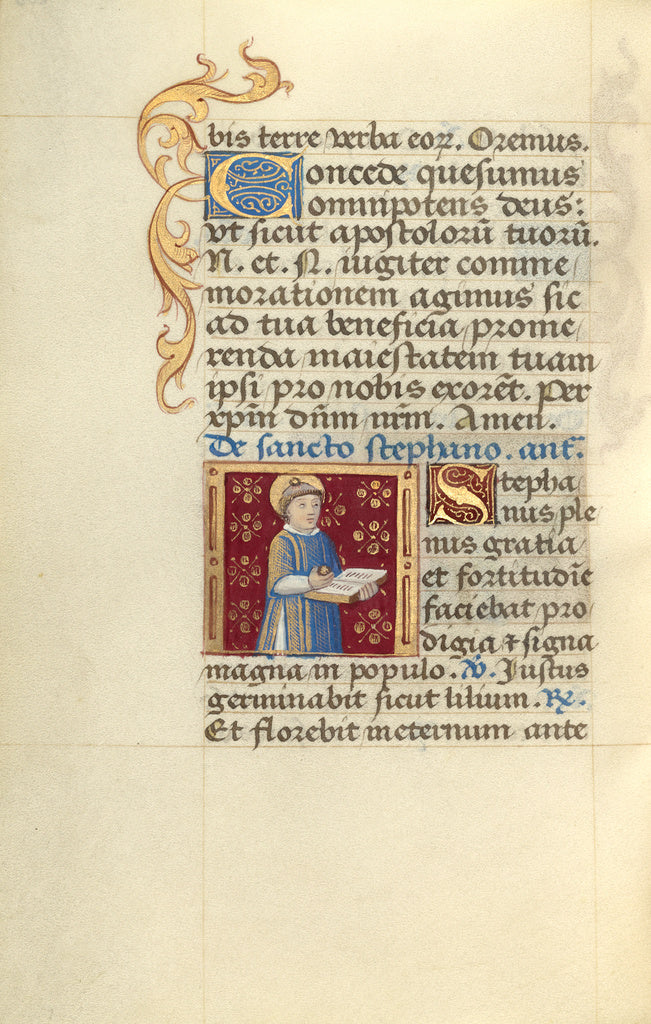 bis terre verba eoꝝ. Oremus.
Concede quesumus
omnipotens deus:
vt sicut apostolorū tuorū.
N. et. N. iugiter comme
morationem agimus sic
ad tua beneficia prome
renda maiestatem tuam
ipsi pro nobis exorēt. Per
xpīn dūm nrm. Amen.
De sancto stephano. anť.
Stepha
nus ple
nus gratia
et fortitudīe
faciebat pro
digia ⁊ signa
magna in populo. ℣. Justus
germinabit sicut lilium. ℞.
Et florebit ineternum ante